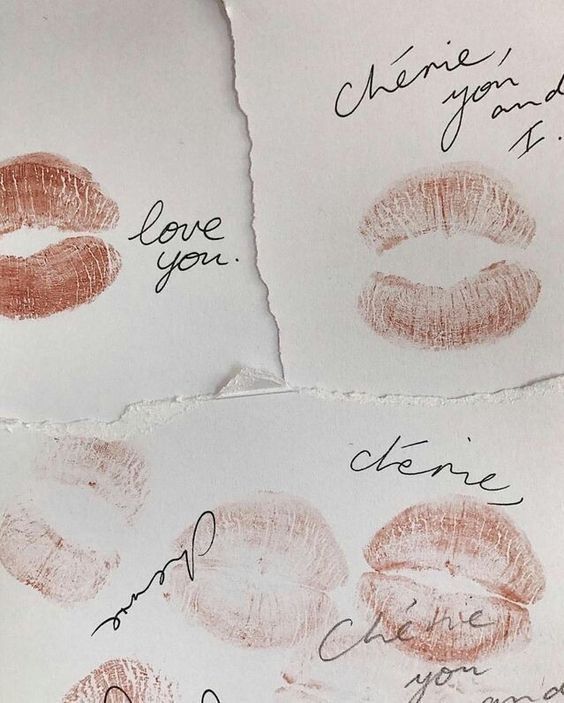 Chérie,
you
and
I.
love
you.
chérie,
Chérie
you
and